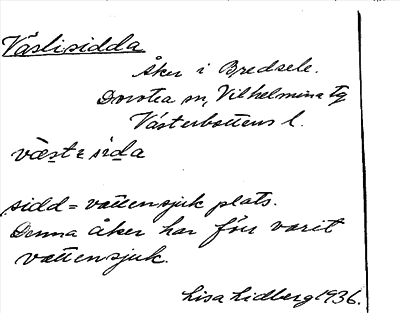 Västisidda
Åker i Bredsele.
Dorotea sn, Vilhelmina tg
Västerbottens l.
væste sida
sidd = vattensjuk plats.
Denna åker har förr varit
vattensjuk.
Lisa Lidberg 1936.